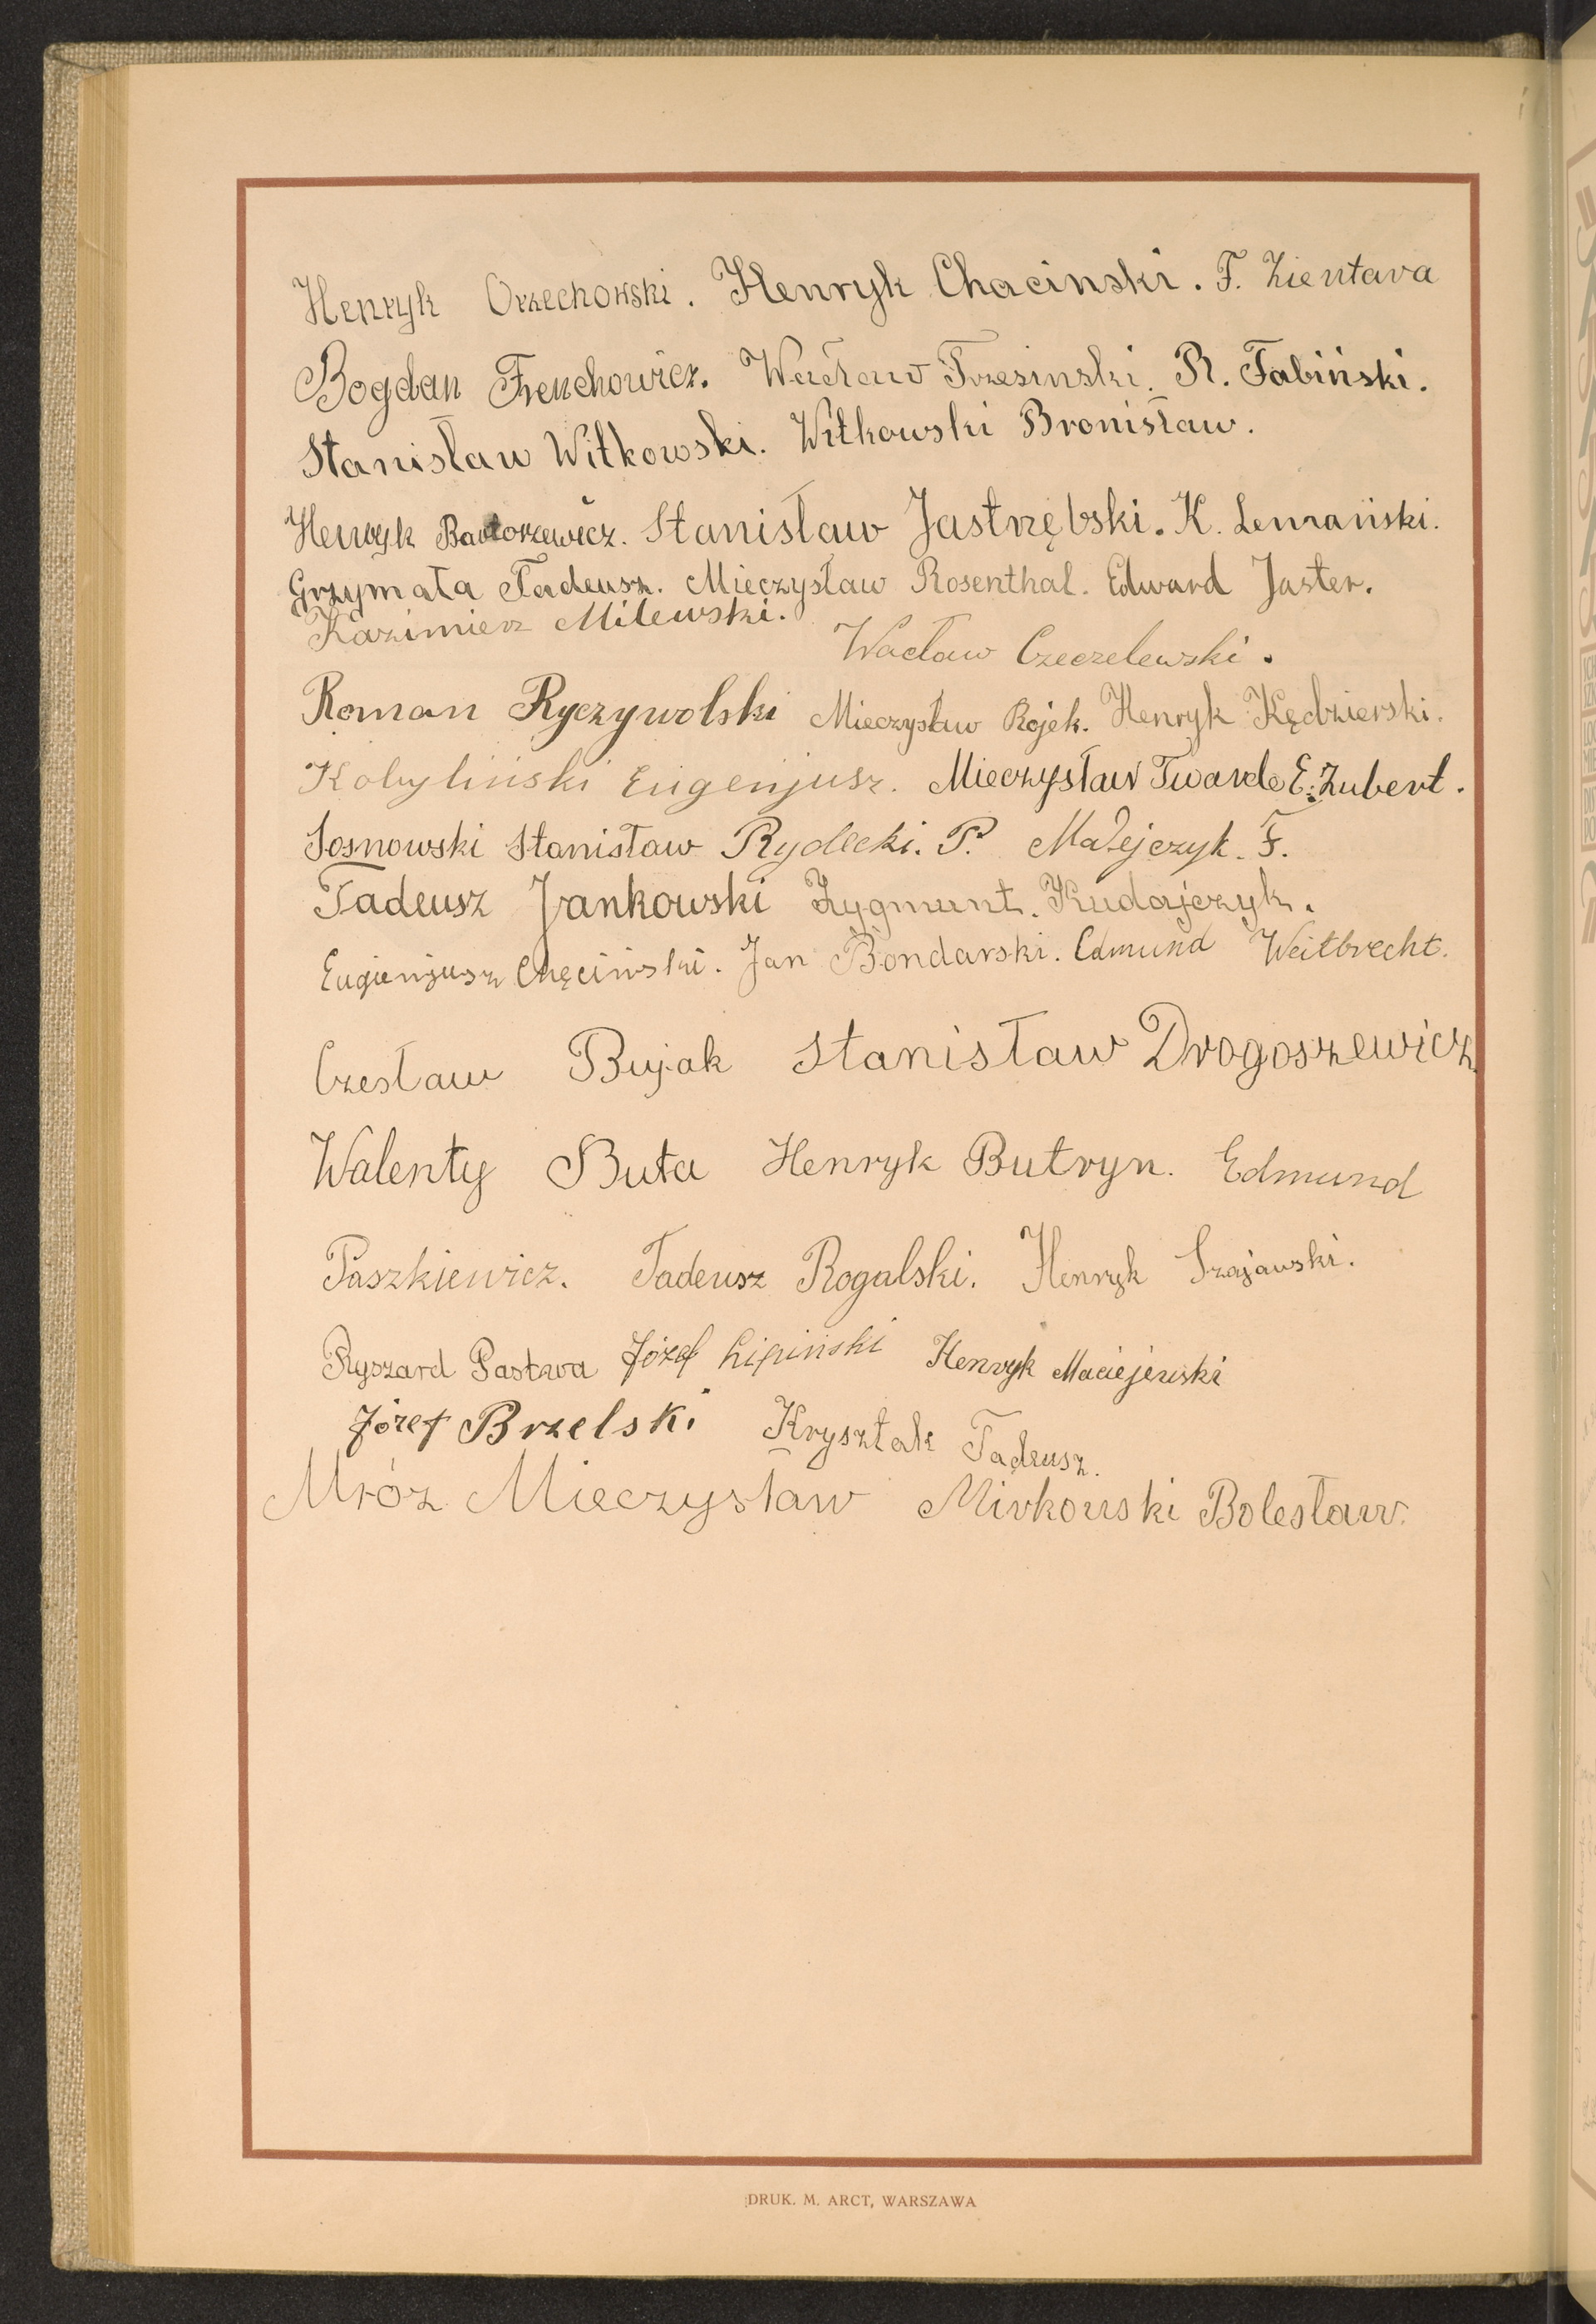 Henryk Orzechowski. Henryk Chacinski. F. Zientara
Bogdan Frenchowicz. Wacław Trzesinski. R. Fabiński.
Stanisław Witkowski. Witkowski Bronisław.
Henryk Stanisław Jastrzębski. K. Lemański.
Grzymała Tadeusz. Mieczysław Rosenthal. Edward Jaster.
Kazimierz Milewski.
Wacław Czeczelewski.
Roman Ryczywolski Mieczysław Rojek. Henryk Kędzierski.
Kobyliński Eugenjusz. Mieczysław Twardo E. Zubert.
Sosnowski Stanisław Rydecki. P. Matejczyk. F.
Tadeusz Jankowski Zygmunt. Kudajczyk.
Eugienjusz Chęciński. Jan Bondarski. Edmund Weitbrecht.
Czesław Bujak Stanisław Drogoszewicz
Walenty Buta Henryk Butryn. Edmund
Paszkiewicz. Tadeusz Rogalski. Henryk Szajawski.
Ryszard Pastwa Józef Lipiński Henryk Maciejewski
Józef Brzelski Kryształ Tadeusz.
Mróz Mieczysław Mirkowski Bolesław.
DRUK. M. ARCT, WARSZAWA